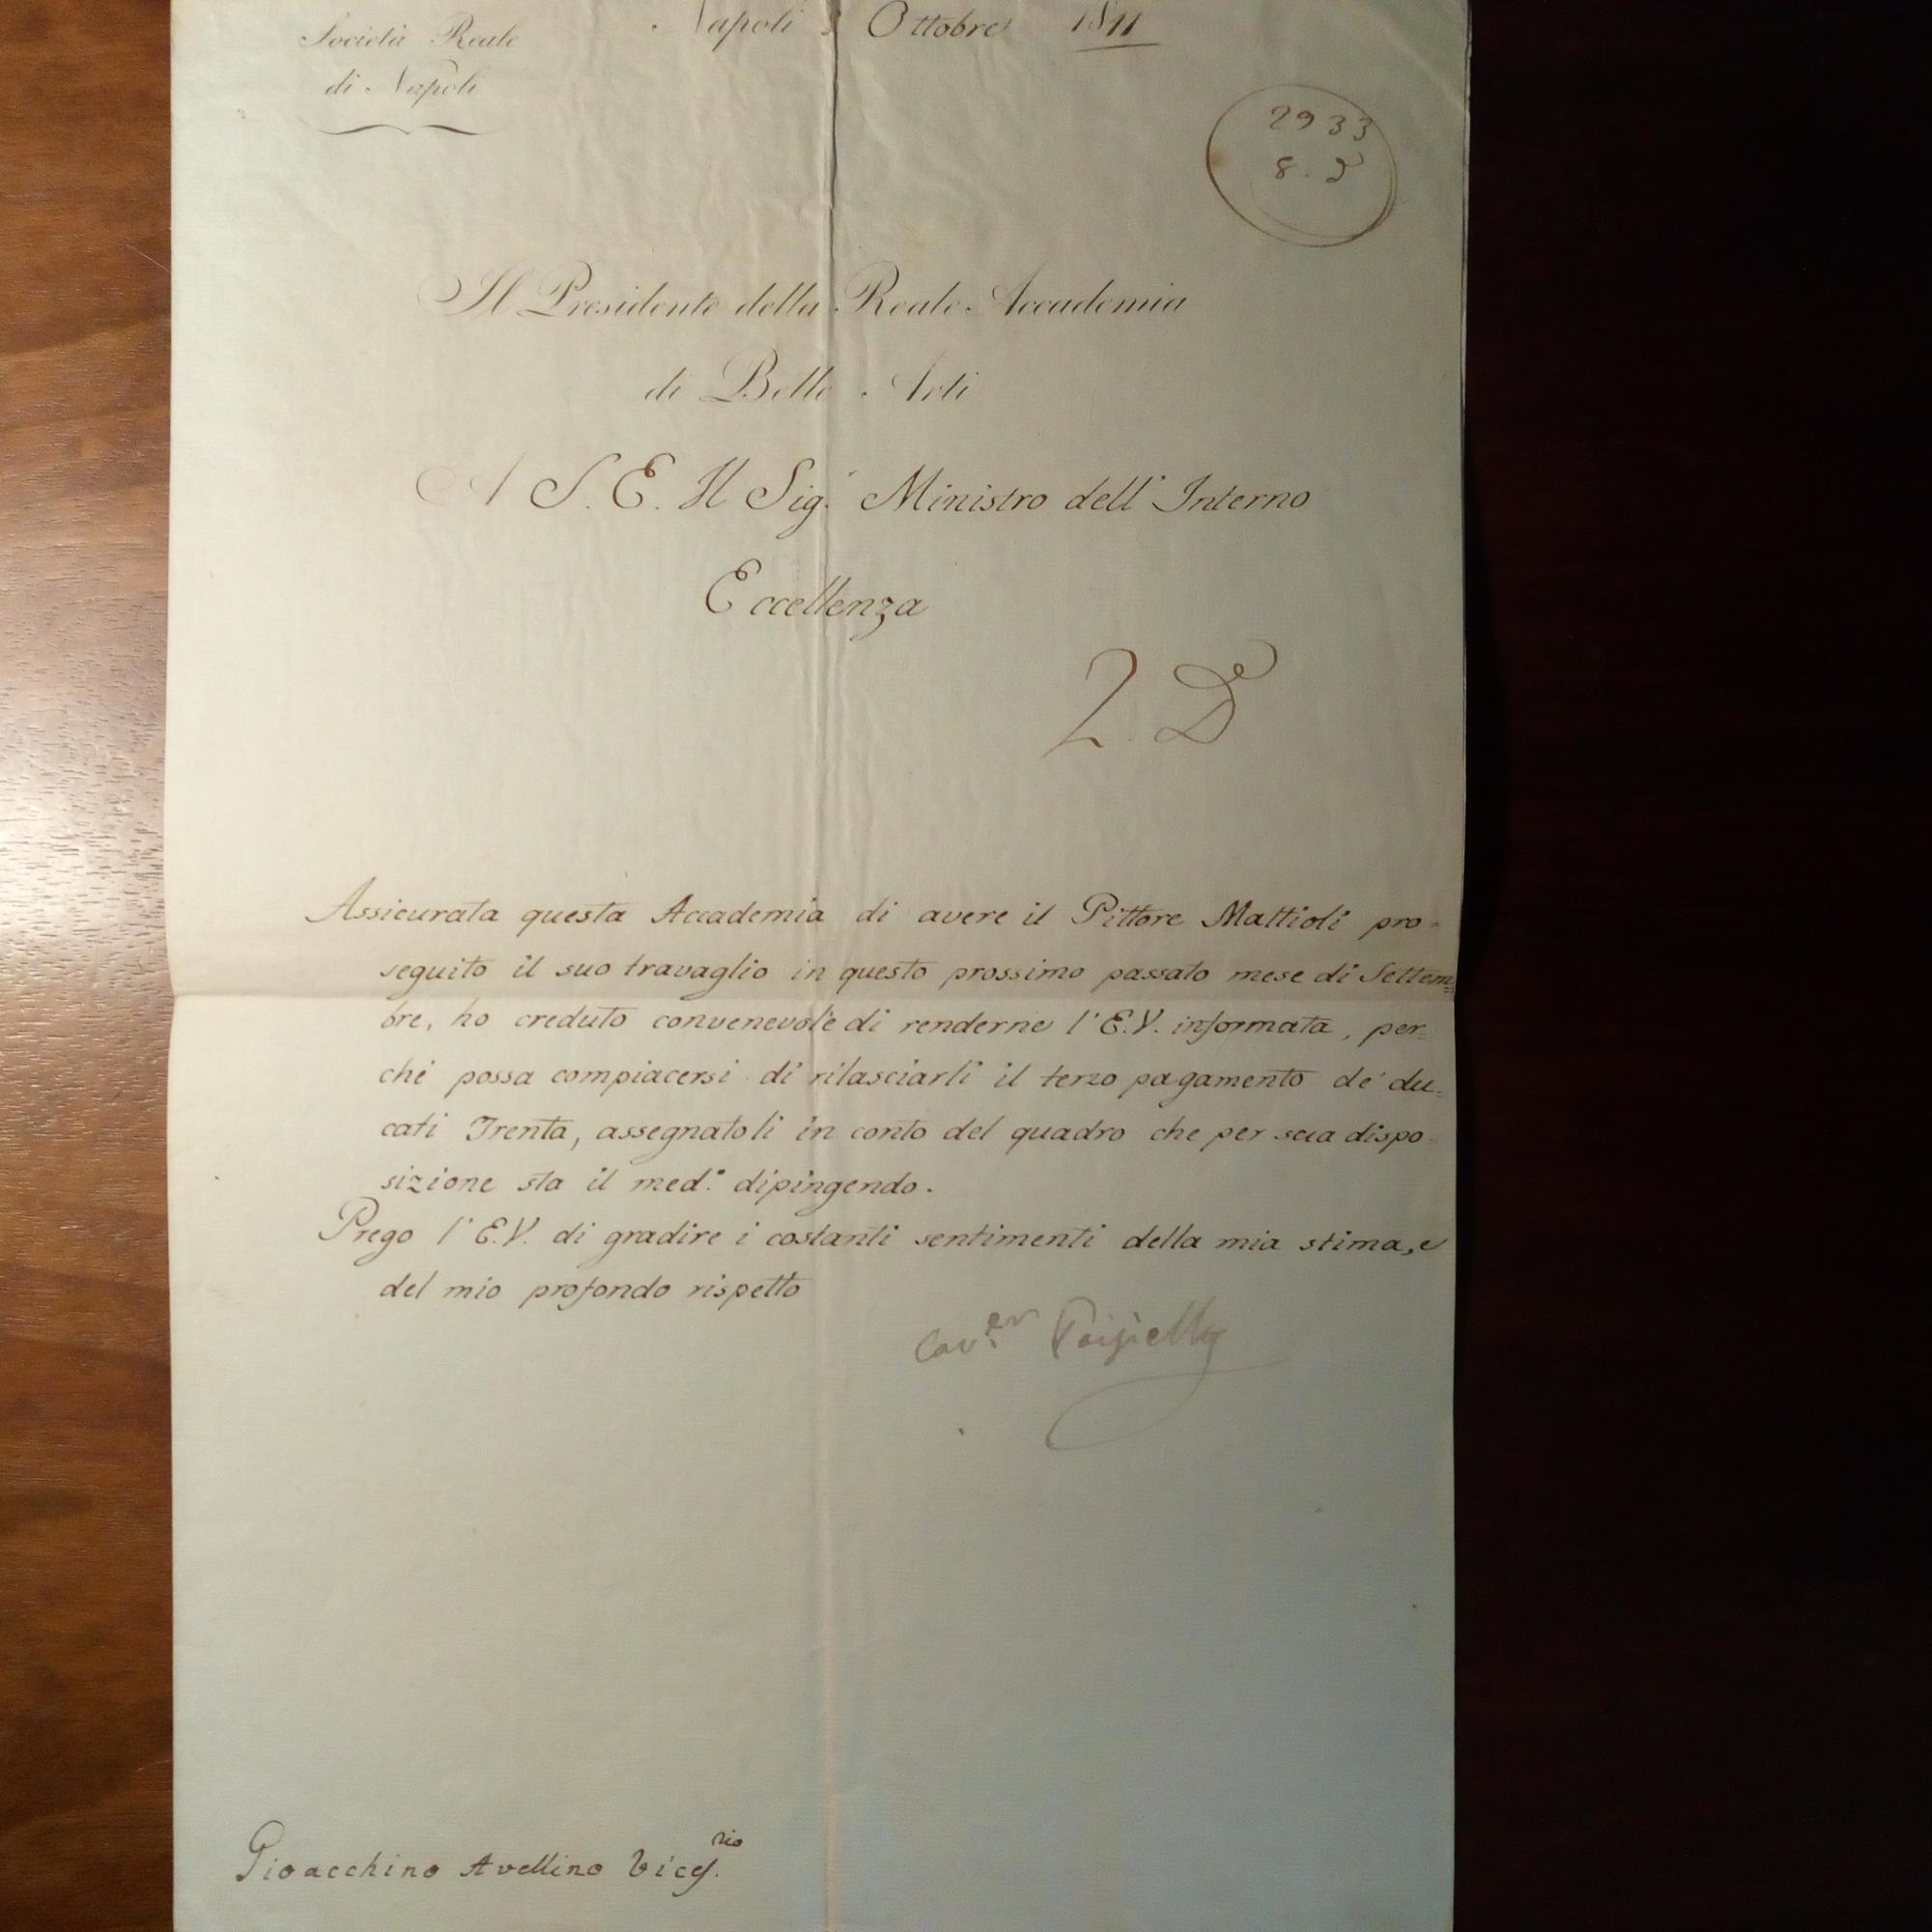 Società Reale
di Napoli
Napoli 3 Ottobre 1811
2933
8.
Il Presidente della Reale Accademia
di Belle Arti
A S. E. Il Sig.r Ministro dell' Interno
Eccellenza
2. D
Assicurata questa Accademia di avere il Pittore Mattioli pro=
seguito il suo travaglio in questo prossimo passato mese di Settem=
bre, ho creduto convenevole di renderne l' E.V. informata, per=
chè possa compiacersi di rilasciarli il terzo pagamento de' du=
cati Trenta, assegnatoli in conto del quadro che per sua dispo=
sizione sta il med.o dipingendo.
Prego l' E.V. di gradire i costanti sentimenti della mia stima, e
del mio profondo rispetto
Cav.er Paisiello
Gioacchino Avellino